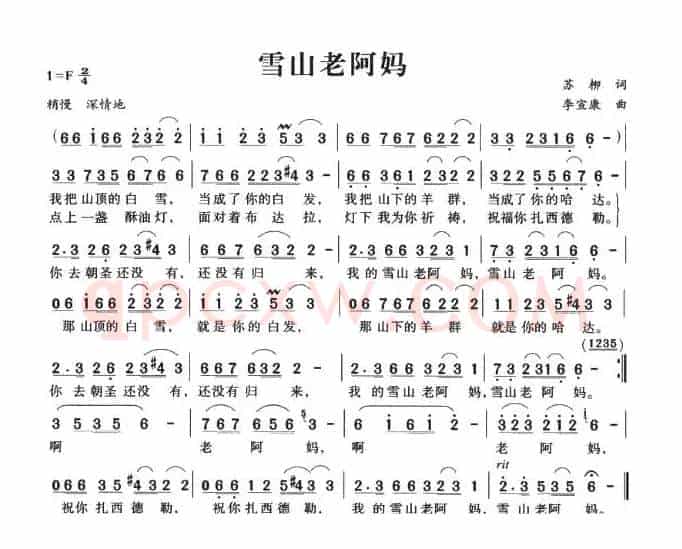 雪山老阿妈
1=F 2/4
苏柳 词
稍慢 深情地
李宣康 曲
(66 i66 2322 | ii 23 533 | 66 767 6222 | 33 2316 6 -)
33 735 6766 | 766 223 #43 | 66 361 2322 | 322 5567 6 -
我把山顶的白雪, 当成了你的白发, 我把山下的羊群, 当成了你的哈达。
点上一盏 酥油灯, 面对着布达拉, 灯下我为你祈祷, 祝福你扎西德勒。
2·3 26 23 #43 | 667 631 2 - | 2·3 66 323 1 | 7·3 235 6 -
你去朝圣还没有, 还没有归来, 我的雪山老阿妈, 雪山老阿妈。
06 i66 2322 | 0i ii 23 533 | 06 767 6222 | 0i 23 #433
那山顶的白雪, 就是你的白发, 那山下的羊群 就是你的哈达。
(1235)
2·3 26 23 #43 | 667 631 2 - | 2·3 66 323 1 | 7·3 235 6 - :||
你去朝圣还没有, 还没有归来, 我的雪山老阿妈, 雪山老阿妈。
3 6 i2 6 - | 767 656 3 - | 3 6 i i 6 - | 323 212 6 -
啊 老阿妈, 啊 老阿妈,
rit
066 35 #43 2 | 066 35 #43 2 | 2·3 66 323 1 | 2·3 535 6 -
祝你扎西德勒, 祝你扎西德勒, 我的雪山老阿妈, 雪山老阿妈。
qpcxw.com